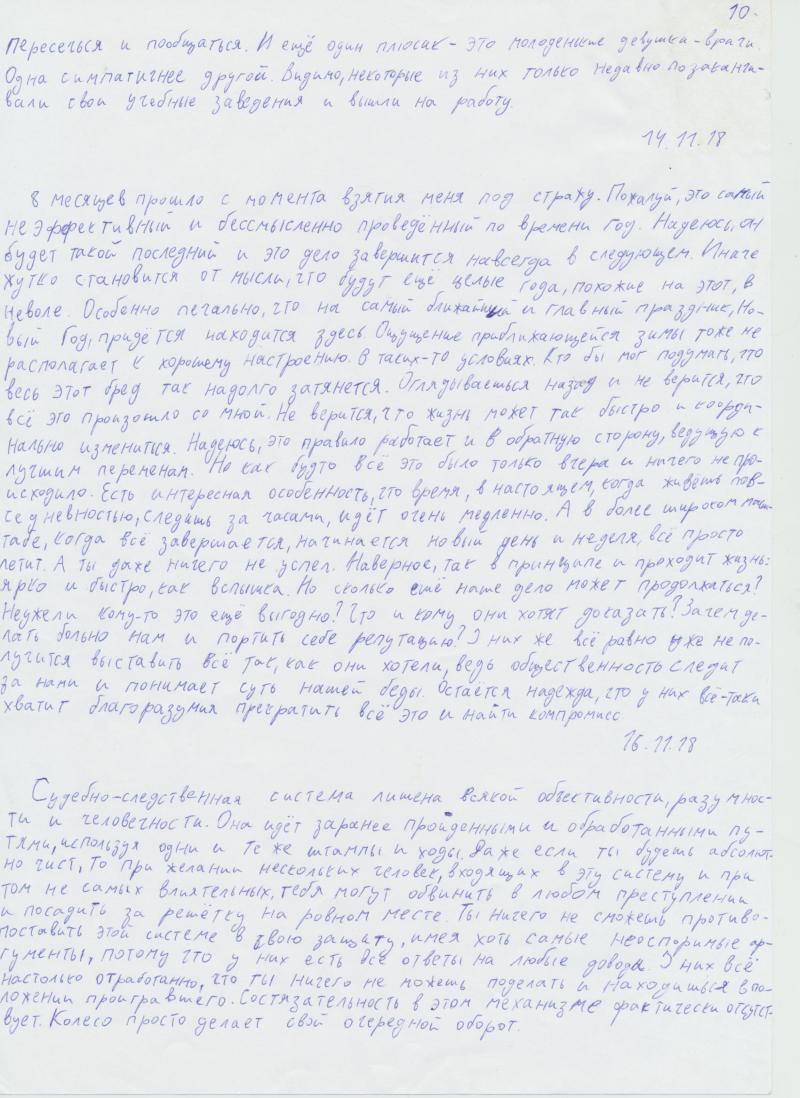 10.
пересечься и пообщаться. И ещё один плюсак - это молоденькие девушка-врачи.
Одна симпатичнее другой. Видимо, некоторые из них только недавно позаканчи-
вали свои учебные заведения и вышли на работу.
14.11.18
8 месящев прошло с момента взятия меня под стражу. Пожалуй, это самый
неэффективный и бессмысленно проведённый по времени год. Надеюсь, он
будет такой последний и это дело завершится навсегда в следующем. Иначе
жутко становится от мысли, что будут ещё целые года, похожие на этот, в
неволе. Особенно печально, что на самый ближайший и главный праздник, Но-
вый Год, придётся находится здесь. Ощущение приближающейся зимы тоже не
располагает к хорошему настроению. В таких-то условиях. Кто бы мог подумать, что
весь этот бред так надолго затянется. Оглядываешься назад и не верится, что
всё это произошло со мной. Не верится, что жизнь может так быстро и коорди-
нально измениться. Надеюсь, это правило работает и в обратную сторону, ведущую к
лучшим переменам. Но как будто всё это было только вчера и ничего не про-
исходило. Есть интересная особенность, что время, в настоящем, когда живёшь пов-
седневностью, следишь за часами, идёт очень медленно. А в более широком масш-
табе, когда всё завершается, начинается новый день и неделя, всё просто
летит. А ты даже ничего не успел. Наверное, так в принципе и проходит жизнь:
ярко и быстро, как вспышка. Но сколько ещё наше дело может продолжаться?
Неужели кому-то это ещё выгодно? Что и кому они хотят доказать? Зачем де-
лать больно нам и портить себе репутацию? У них же всё равно уже не по-
лучится выставить всё так, как они хотели, ведь общественность следит
за нами и понимает суть нашей беды. Остаётся надежда, что у них всё-таки
хватит благоразумия прекратить всё это и найти компромисс.
16.11.18
Судебно-следственная система лишена всякой объективности, разумнос-
ти и человечности. Она идёт заранее пройденными и обработанными пу-
тями, используя одни и те же штампы и ходы. Даже если ты будешь абсолют-
но чист, то при желании нескольких человек, входящих в эту систему и при
том не самых влиятельных, тебя могут обвинить в любом преступлении
и посадить за решётку на ровном месте. Ты ничего не сможешь противо-
поставить этой системе в свою защиту, имея хоть самые неоспоримые ар-
гументы, потому что у них есть все ответы на любые доводы. У них всё
настолько отработанно, что ты ничего не можешь поделать и находишься в по-
ложении проигравшего. Состязательность в этом механизме фактически отсутст-
вует. Колесо просто делает свой очередной оборот.